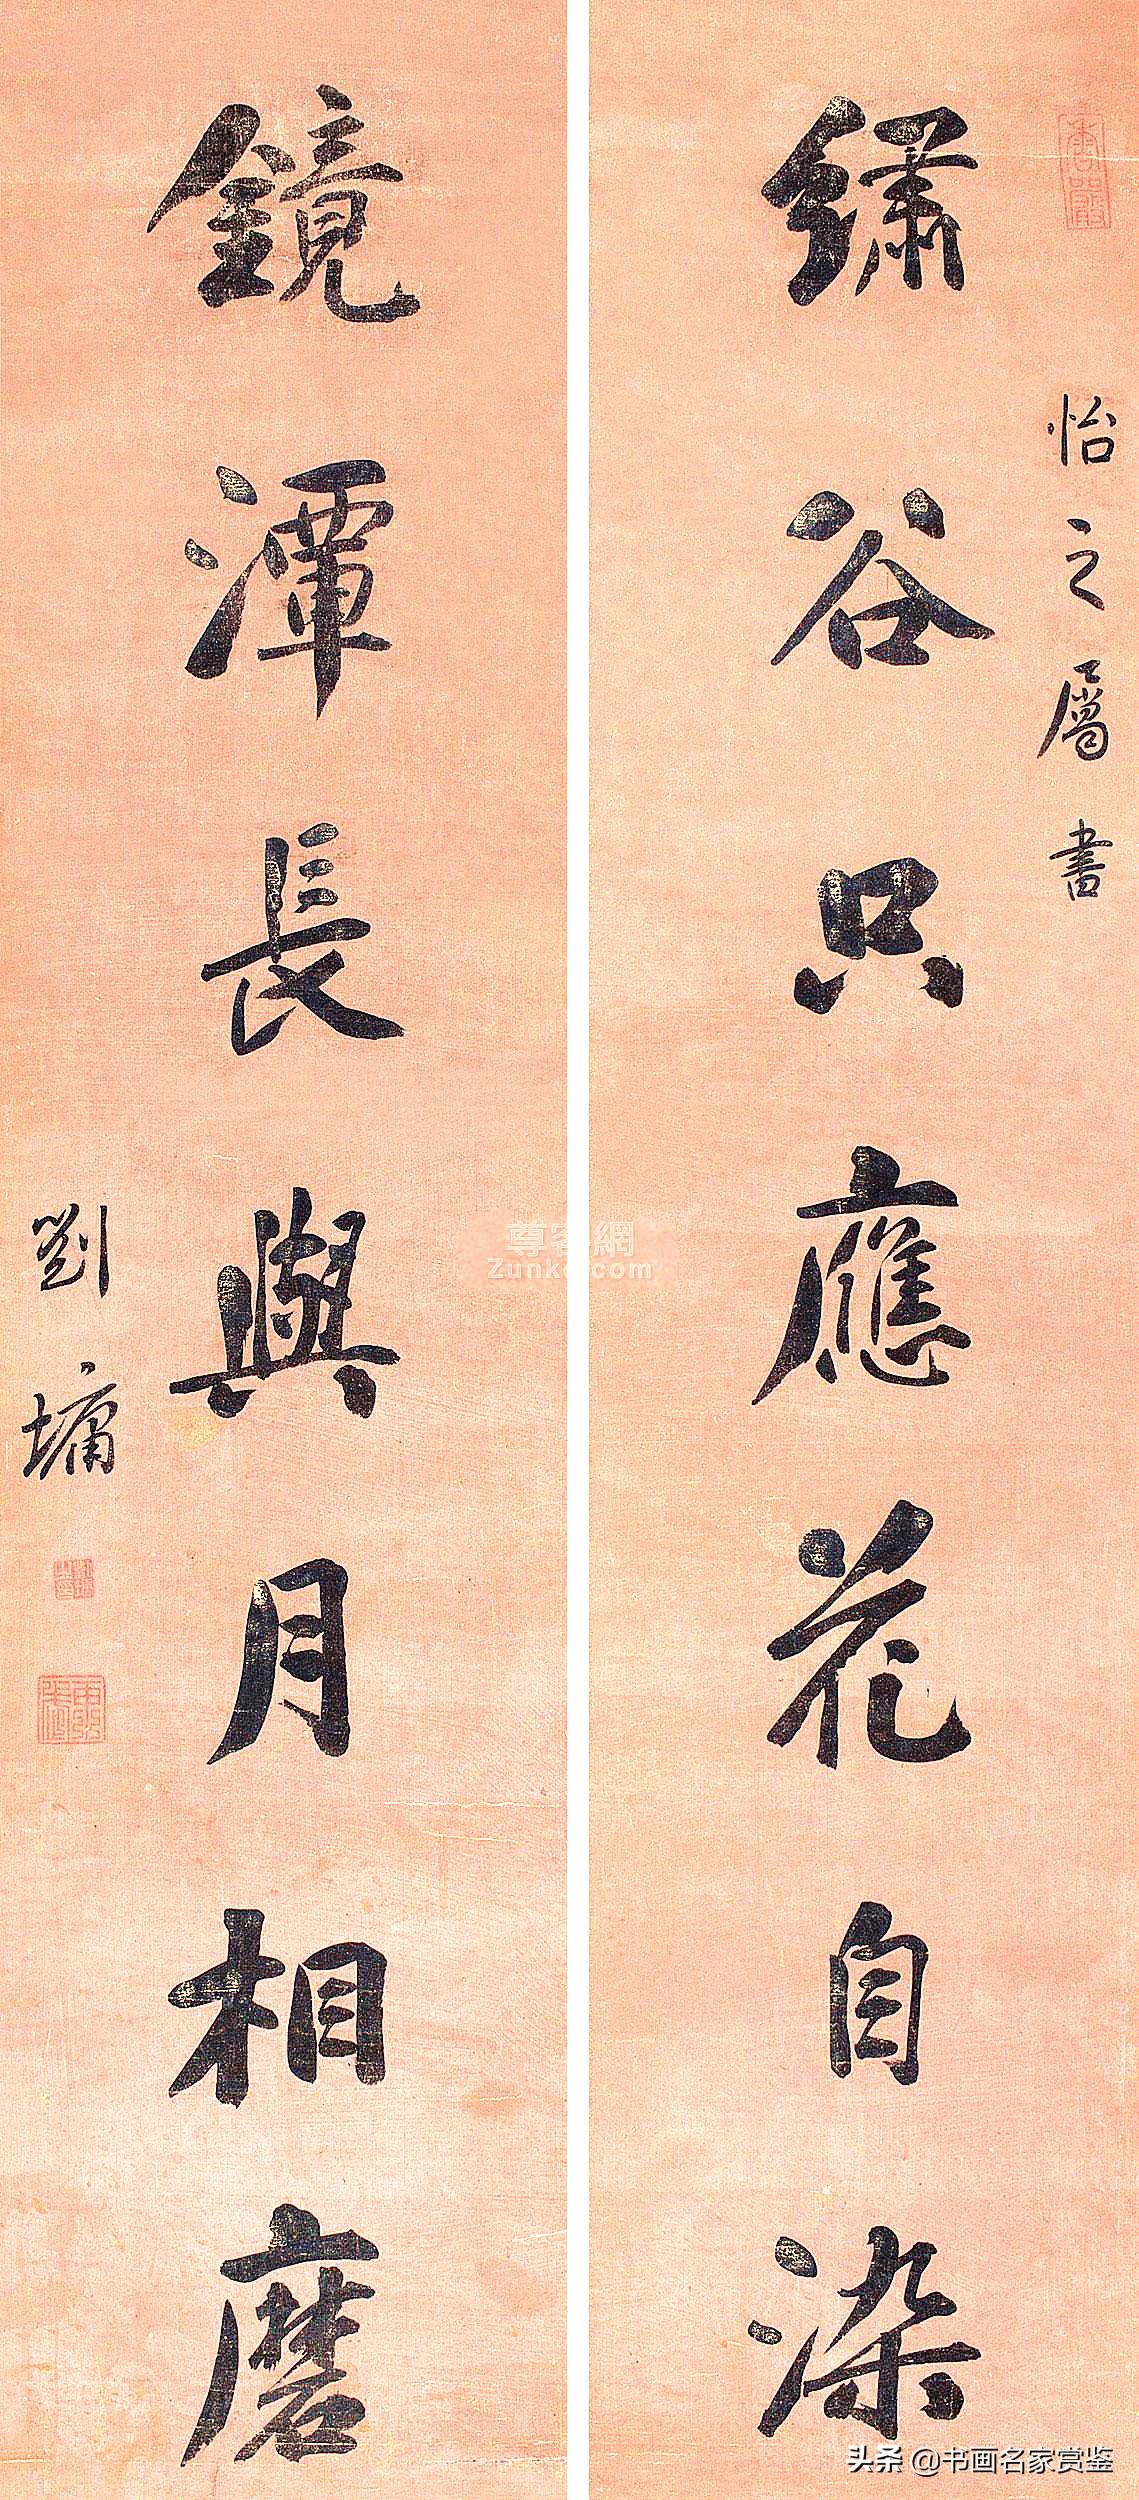 怡之屬書
繡谷只應花自染
鏡潭長與月相磨
劉墉
尊客網
Zunke.com
头条 @书画名家赏鉴